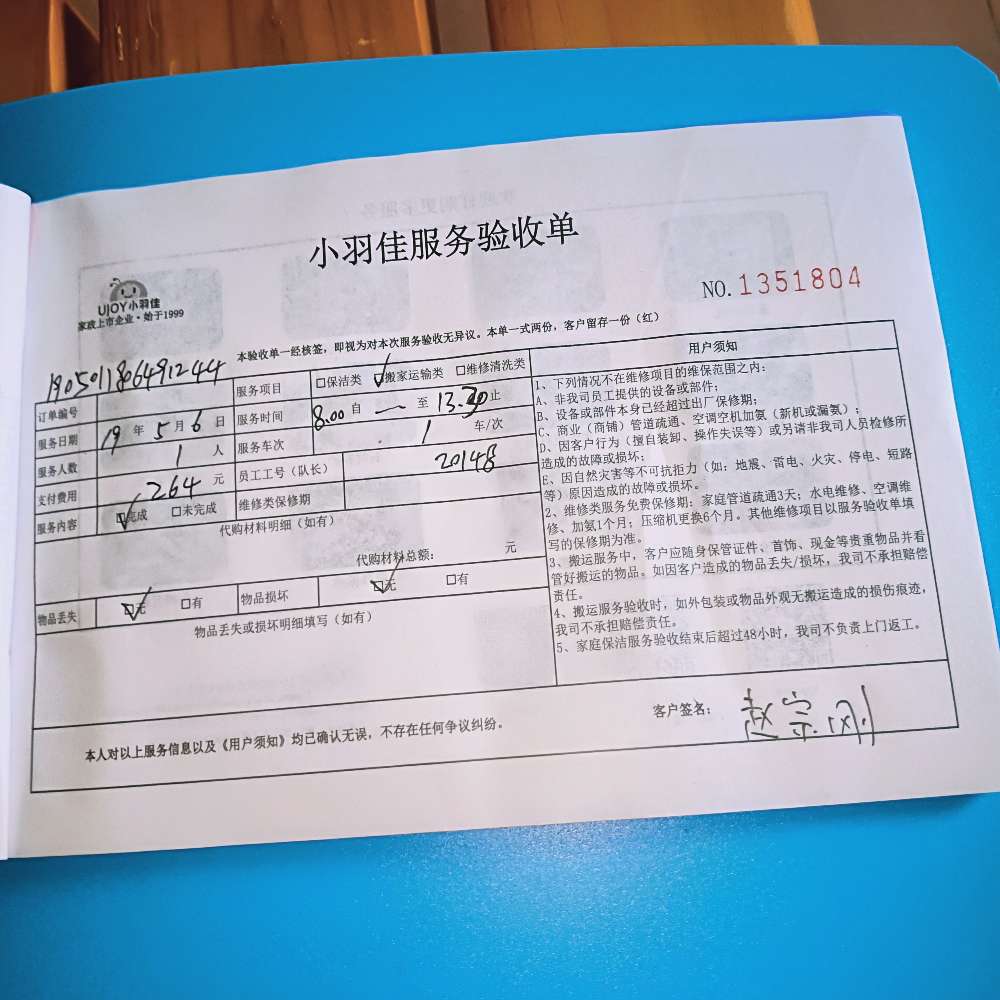 小羽佳服务验收单
UJOY小羽佳
家政上市企业·始于1999
NO.1351804
本验收单一经核签，即视为对本次服务验收无异议。本单一式两份，客户留存一份（红）
订单编号 190501180649 1244 服务项目 □保洁类 ☑搬家运输类 □维修清洗类
服务日期 19年5月6日 服务时间 8.00自 — 至13.30止
服务人数 1人 服务车次 1 车/次
支付费用 264元 员工工号（队长） 20148
服务内容 ☑完成 □未完成 维修类保修期
代购材料明细（如有）
代购材料总额： 元
物品丢失 ☑无 □有 物品损坏 ☑无 □有
物品丢失或损坏明细填写（如有）
用户须知
1、下列情况不在维修项目的维保范围之内：
A、非我司员工提供的设备或部件；
B、设备或部件本身已经超过出厂保修期；
C、商业（商铺）管道疏通、空调空机加氨（新机或漏氨）；
D、因客户行为（擅自装卸、操作失误等）或另请非我司人员检修所
造成的故障或损坏；
E、因自然灾害等不可抗拒力（如：地震、雷电、火灾、停电、短路
等）原因造成的故障或损坏。
2、维修类服务免费保修期：家庭管道疏通3天；水电维修、空调维
修、加氨1个月；压缩机更换6个月。其他维修项目以服务验收单填
写的保修期为准。
3、搬运服务中，客户应随身保管证件、首饰、现金等贵重物品并看
管好搬运的物品。如因客户造成的物品丢失/损坏，我司不承担赔偿
责任。
4、搬运服务验收时，如外包装或物品外观无搬运造成的损伤痕迹，
我司不承担赔偿责任。
5、家庭保洁服务验收结束后超过48小时，我司不负责上门返工。
本人对以上服务信息以及《用户须知》均已确认无误，不存在任何争议纠纷。
客户签名： 赵宗刚